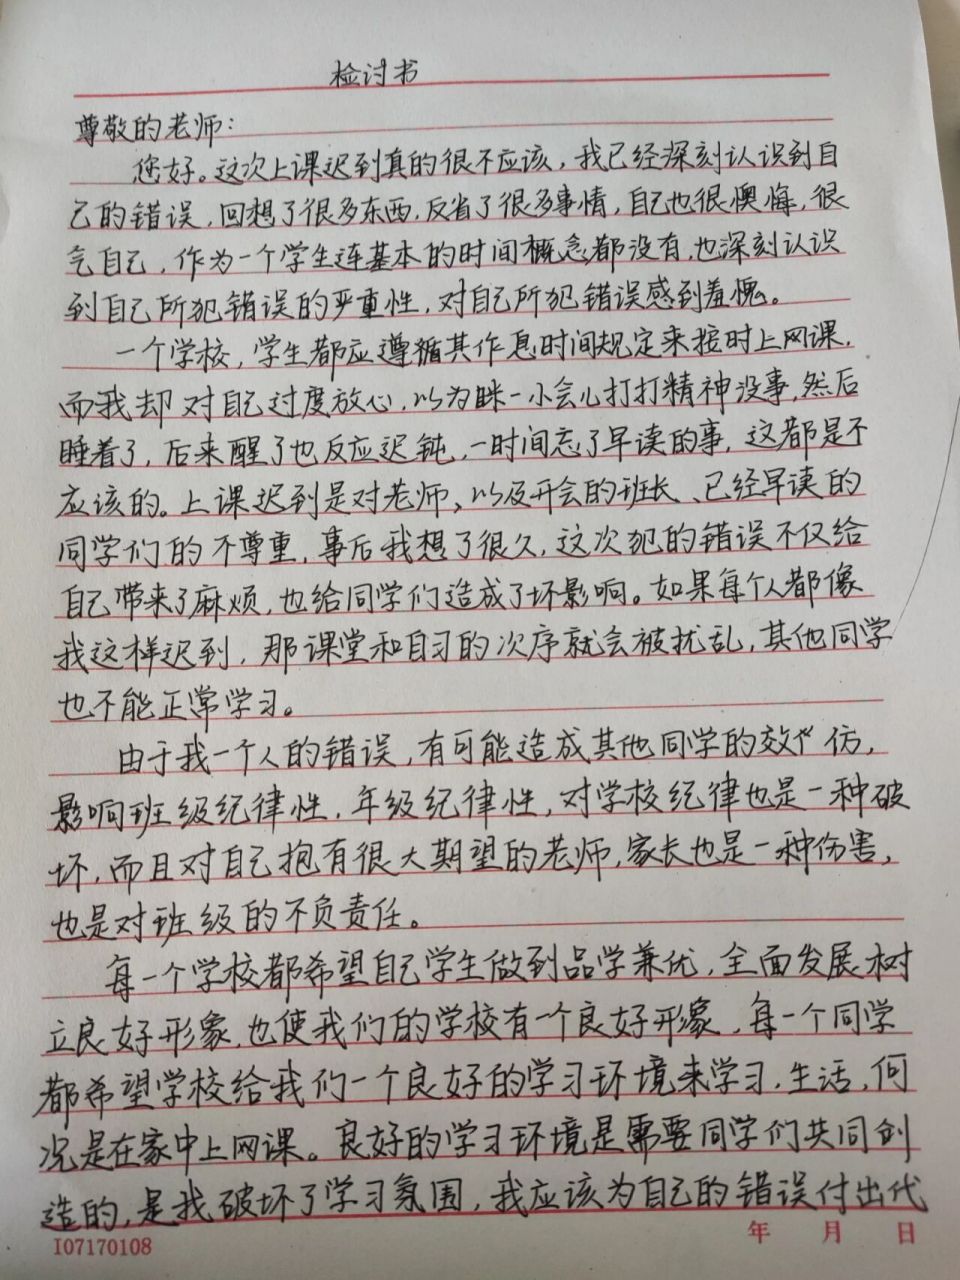 检讨书
尊敬的老师：
您好。这次上课迟到真的很不应该，我已经深刻认识到自
己的错误，回想了很多东西，反省了很多事情，自己也很懊悔，很
气自己，作为一个学生连基本的时间概念都没有，也深刻认识
到自己所犯错误的严重性，对自己所犯错误感到羞愧。
一个学校，学生都应遵循其作息时间规定来按时上网课，
而我却对自己过度放心，以为眯一小会儿打打精神没事，然后
睡着了，后来醒了也反应迟钝，一时间忘了早读的事，这都是不
应该的。上课迟到是对老师、以及开会的班长、已经早读的
同学们的不尊重，事后我想了很久，这次犯的错误不仅给
自己带来了麻烦，也给同学们造成了坏影响。如果每个人都像
我这样迟到，那课堂和自习的次序就会被扰乱，其他同学
也不能正常学习。
由于我一个人的错误，有可能造成其他同学的效仿，
影响班级纪律性，年级纪律性，对学校纪律也是一种破
坏，而且对自己抱有很大期望的老师，家长也是一种伤害，
也是对班级的不负责任。
每一个学校都希望自己学生做到品学兼优，全面发展树
立良好形象，也使我们的学校有一个良好形象，每一个同学
都希望学校给我们一个良好的学习环境来学习，生活，何
况是在家中上网课。良好的学习环境是需要同学们共同创
造的，是我破坏了学习氛围，我应该为自己的错误付出代
I07170108 年 月 日